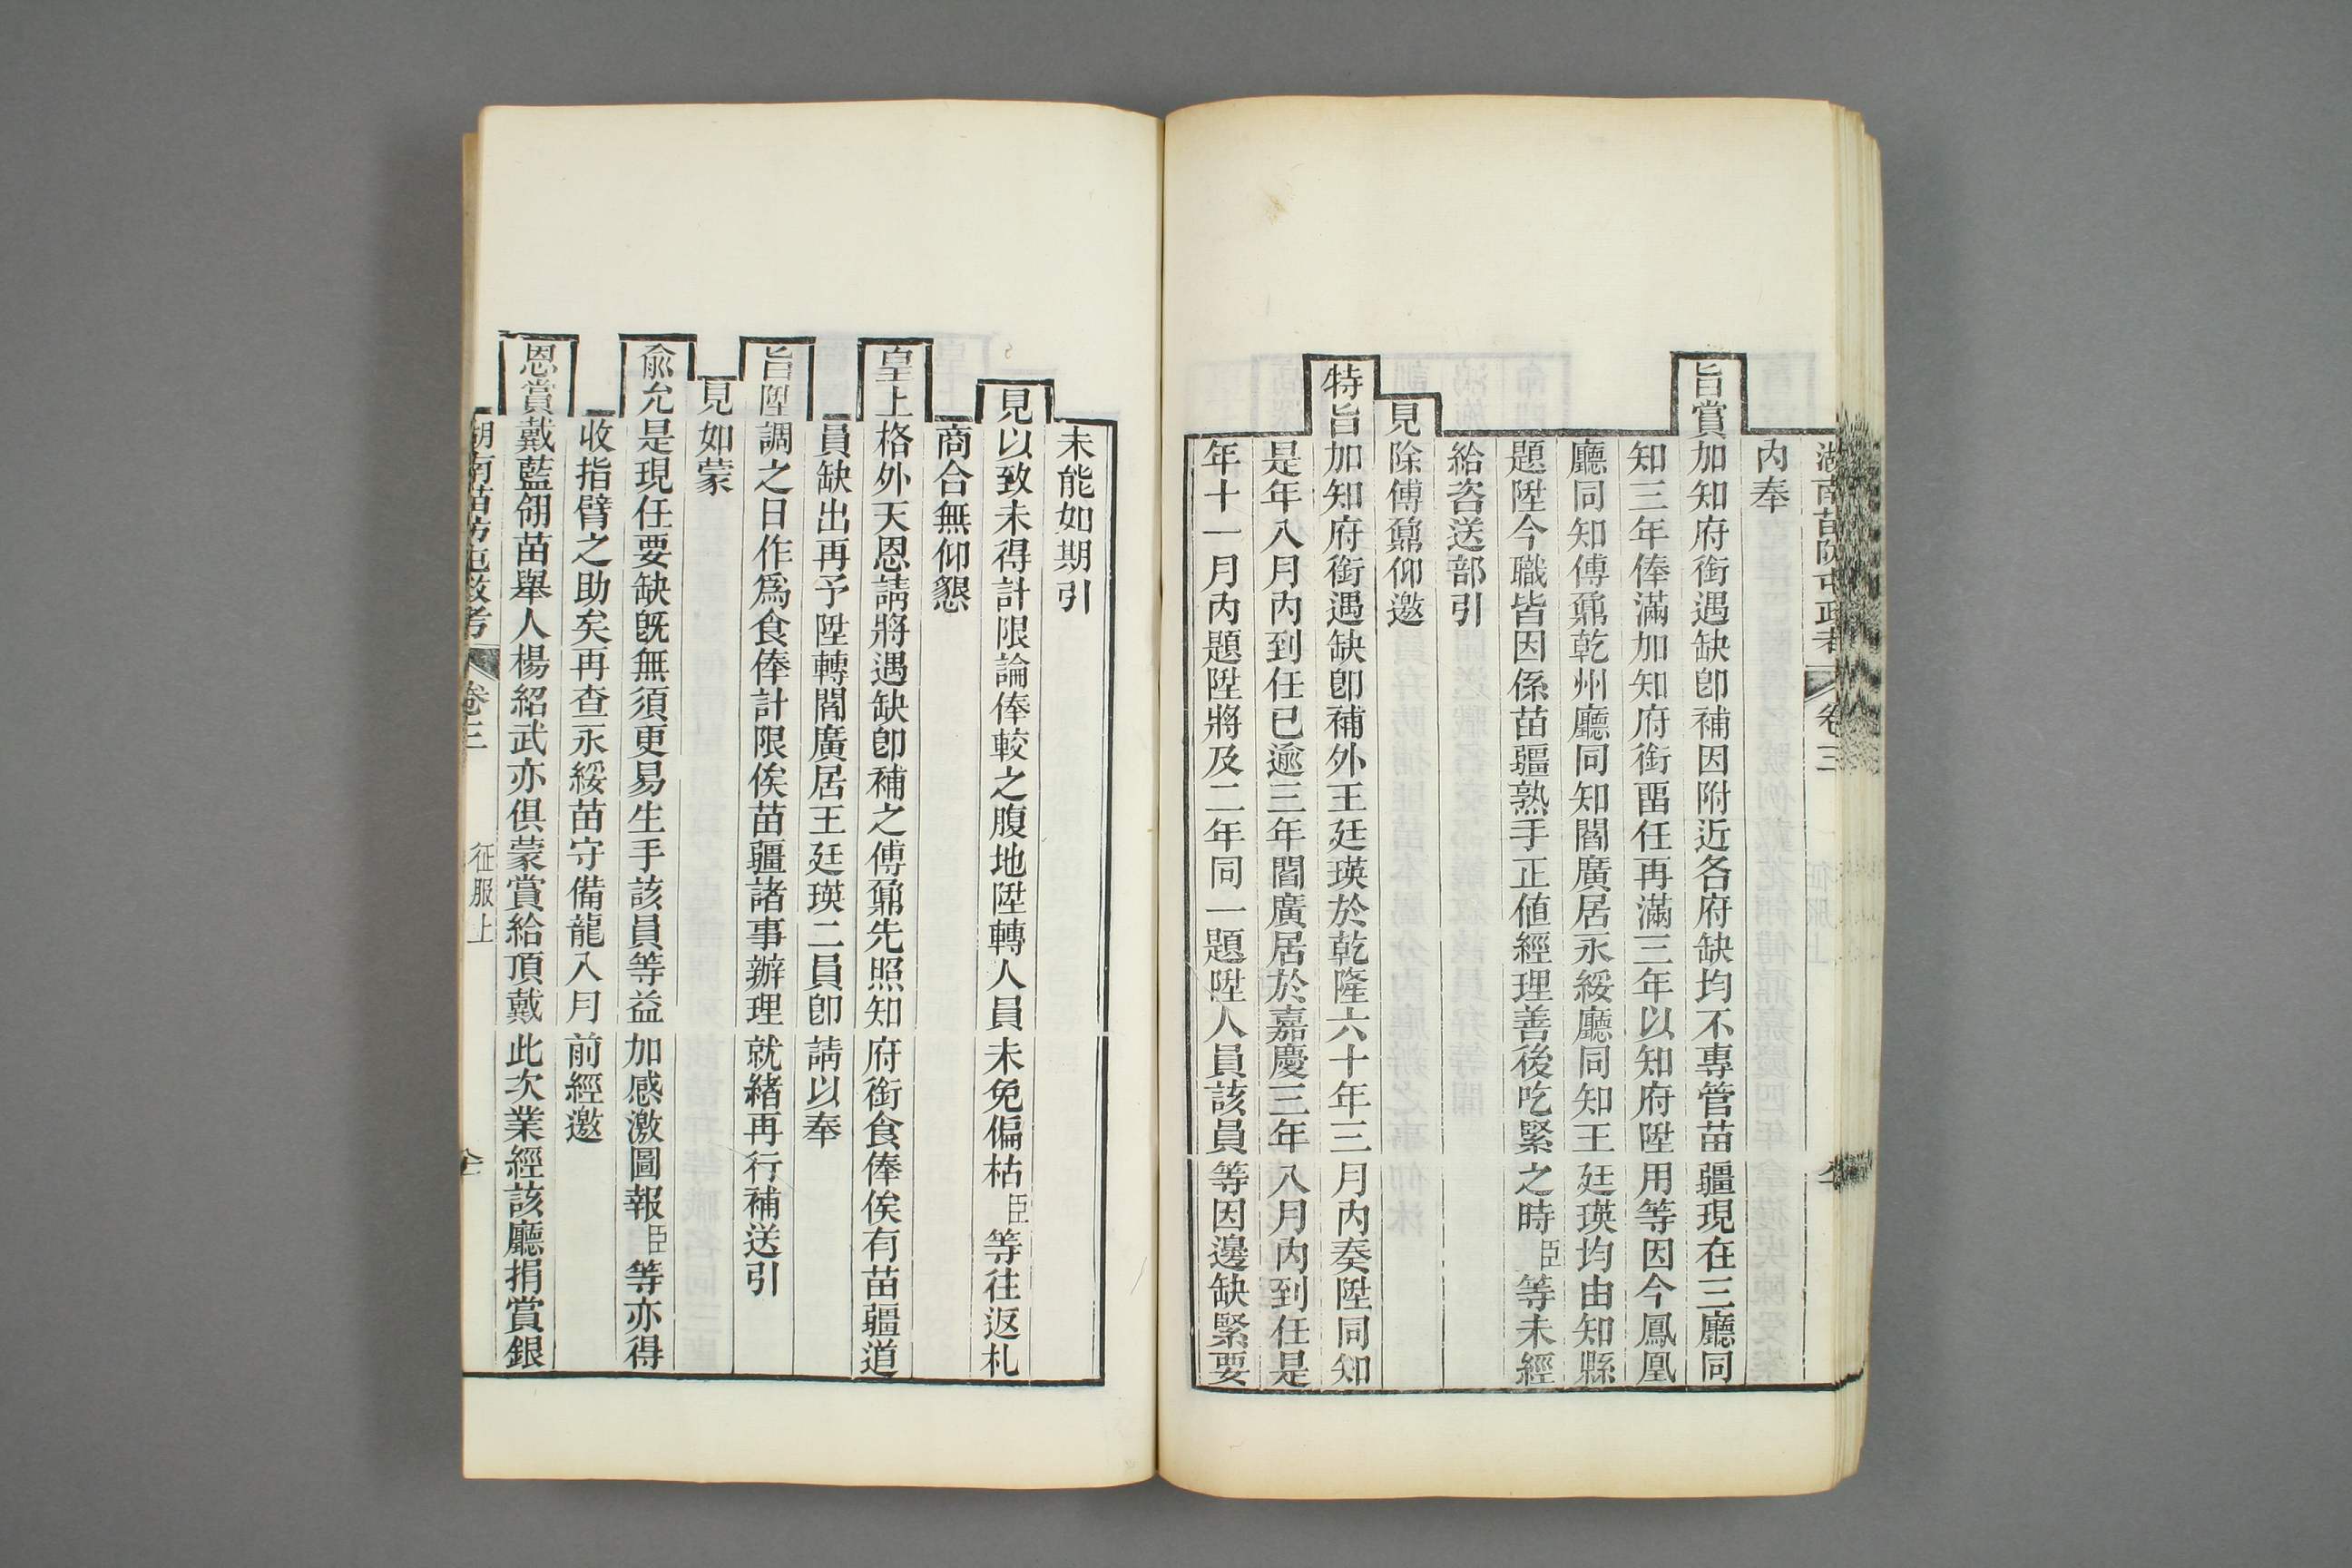 湖南苗防屯政考 卷三
內奉
旨賞加知府銜遇缺卽補因附近各府缺均不專管苗疆現在三廳同
知三年俸滿加知府銜畱任再滿三年以知府陞用等因今鳳凰
廳同知傅鼐乾州廳同知閻廣居永綏廳同知王廷瑛均由知縣
題陞今職皆因係苗疆熟手正值經理善後吃緊之時臣等未經
給咨送部引
見除傅鼐仰邀
特旨加知府銜遇缺卽補外王廷瑛於乾隆六十年三月內奏陞同知
是年八月內到任已逾三年閻廣居於嘉慶三年八月內到任是
年十一月內題陞將及二年同一題陞人員該員等因邊缺緊要
未能如期引
見以致未得計限論俸較之腹地陞轉人員未免偏枯臣等往返札
商合無仰懇
皇上格外天恩請將遇缺卽補之傅鼐先照知府銜食俸俟有苗疆道
員缺出再予陞轉閻廣居王廷瑛二員卽請以奉
旨陞調之日作爲食俸計限俟苗疆諸事辦理就緒再行補送引
見如蒙
兪允是現任要缺旣無須更易生手該員等益加感激圖報臣等亦得
收指臂之助矣再查永綏苗守備龍入月前經邀
恩賞戴藍翎苗舉人楊紹武亦俱蒙賞給頂戴此次業經該廳捐賞銀
湖南苗防屯政考 卷三 征服上